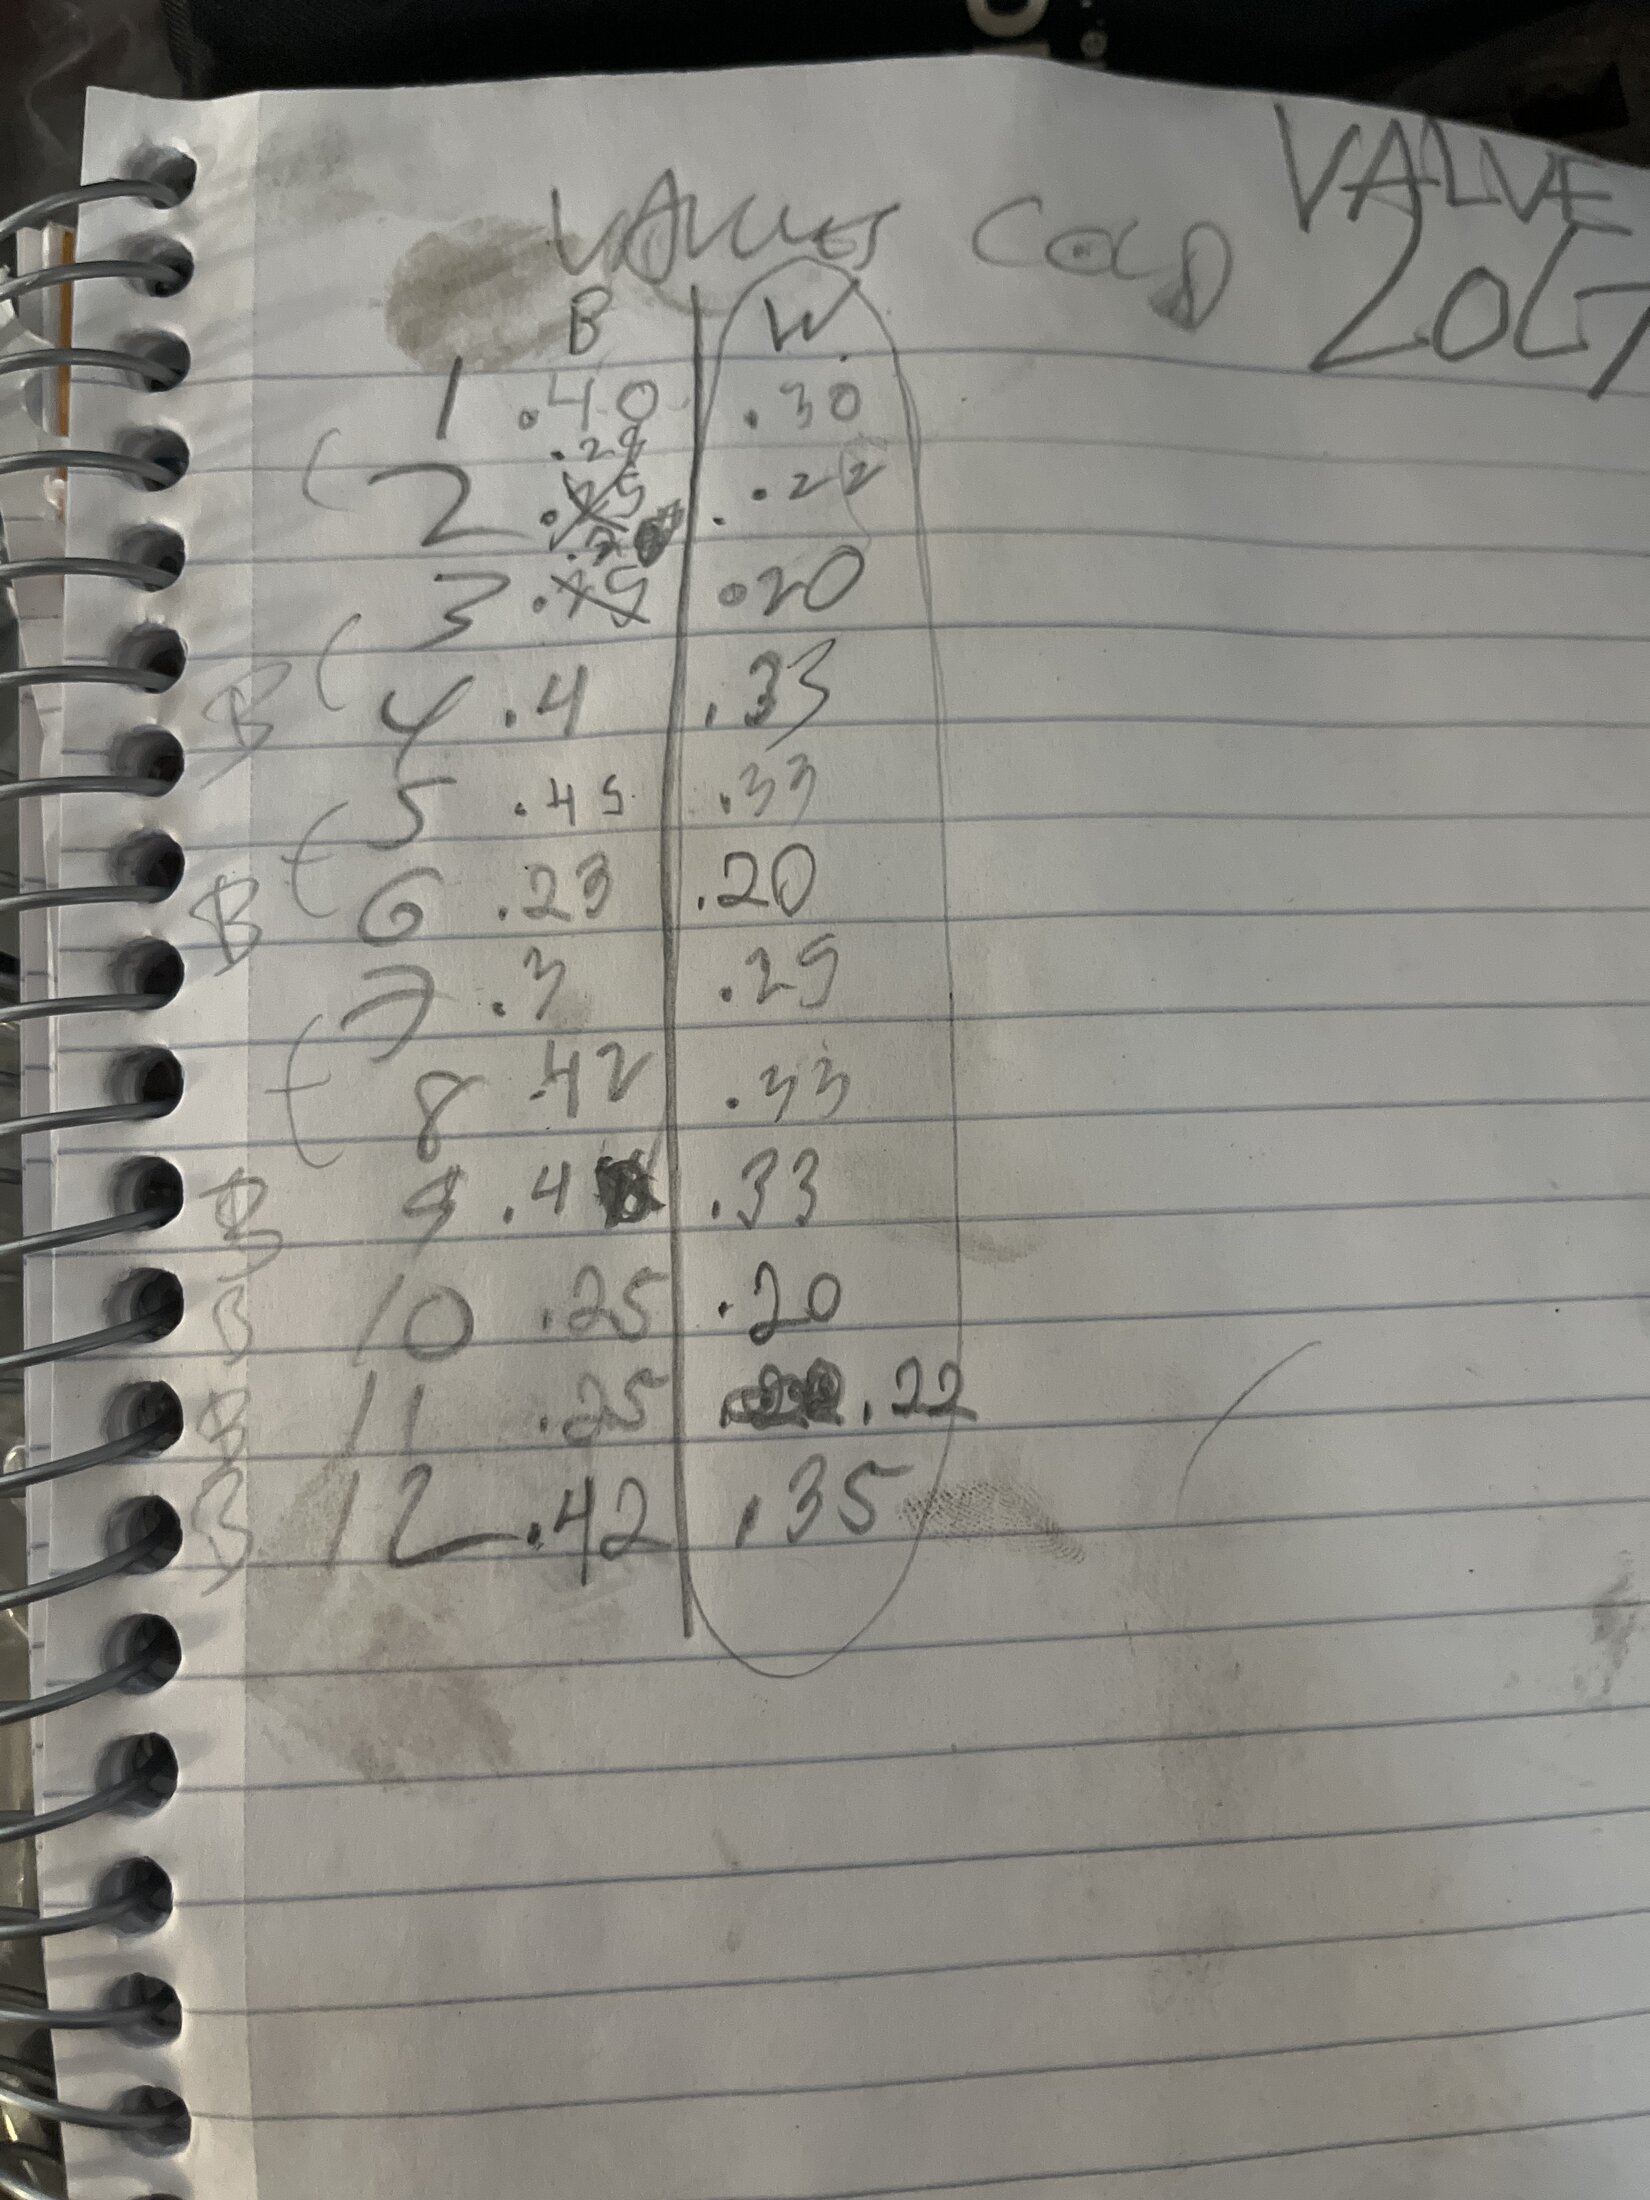 VALVE
VALVES COLD
2047
B W
1 .40 .30
.28
2 .25 .22
.2
3 .25 .20
B 4 .4 .33
5 .45 .33
B 6 .23 .20
7 .3 .25
8 .42 .33
B 9 .4 .33
B 10 .25 .20
B 11 .25 .22
B 12 .42 .35